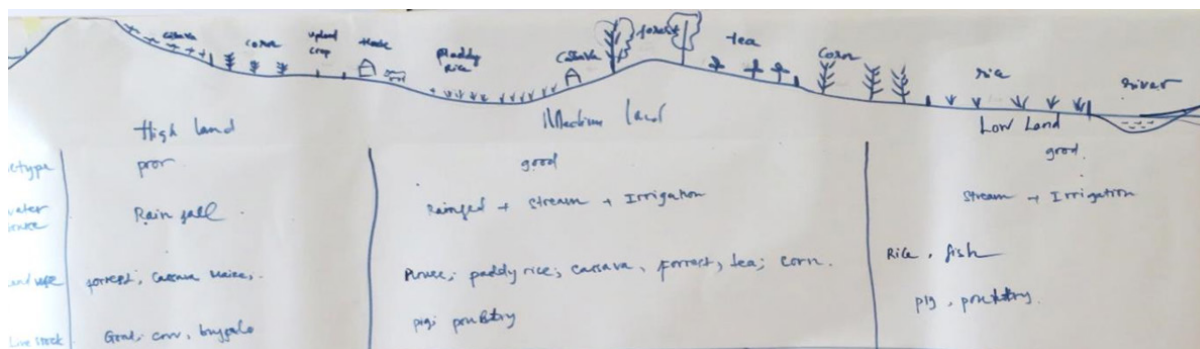 casava corn upland crop House Paddy Rice Cassava forest tea Corn rice river
High land Medium land Low Land
type poor good good
Rain fall Rainfed + Stream + Irrigation Stream + Irrigation
forrest, Cassava Maize, paddy rice; cassava, forrest, tea; corn. Rice, fish
Live stock Goat, cow, buffalo pig; poultry pig, poultry.